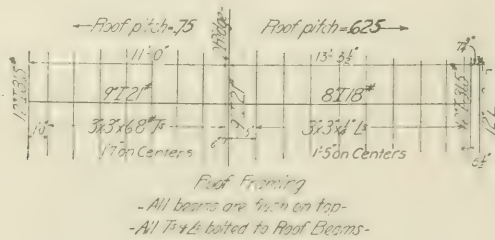 Roof pitch=.75 Ridge Roof pitch=.625
11'-0" 13'-3½"
12"I 31.5#
9"I 21# 9"I 21# 8"I 18#
3"x3"x6.8# Ts 3"x3"x¼" Ls
1'-7" on Centers 1'-5" on Centers
Roof Framing
- All beams are flush on top-
-All Ts & Ls bolted to Roof Beams-